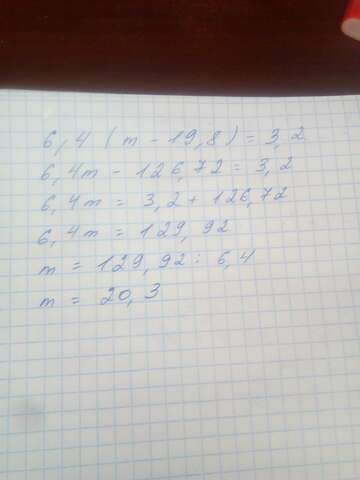 6,4 (m - 19,8) = 3,2
6,4m - 126,72 = 3,2
6,4m = 3,2 + 126,72
6,4m = 129,92
m = 129,92 : 6,4
m = 20,3